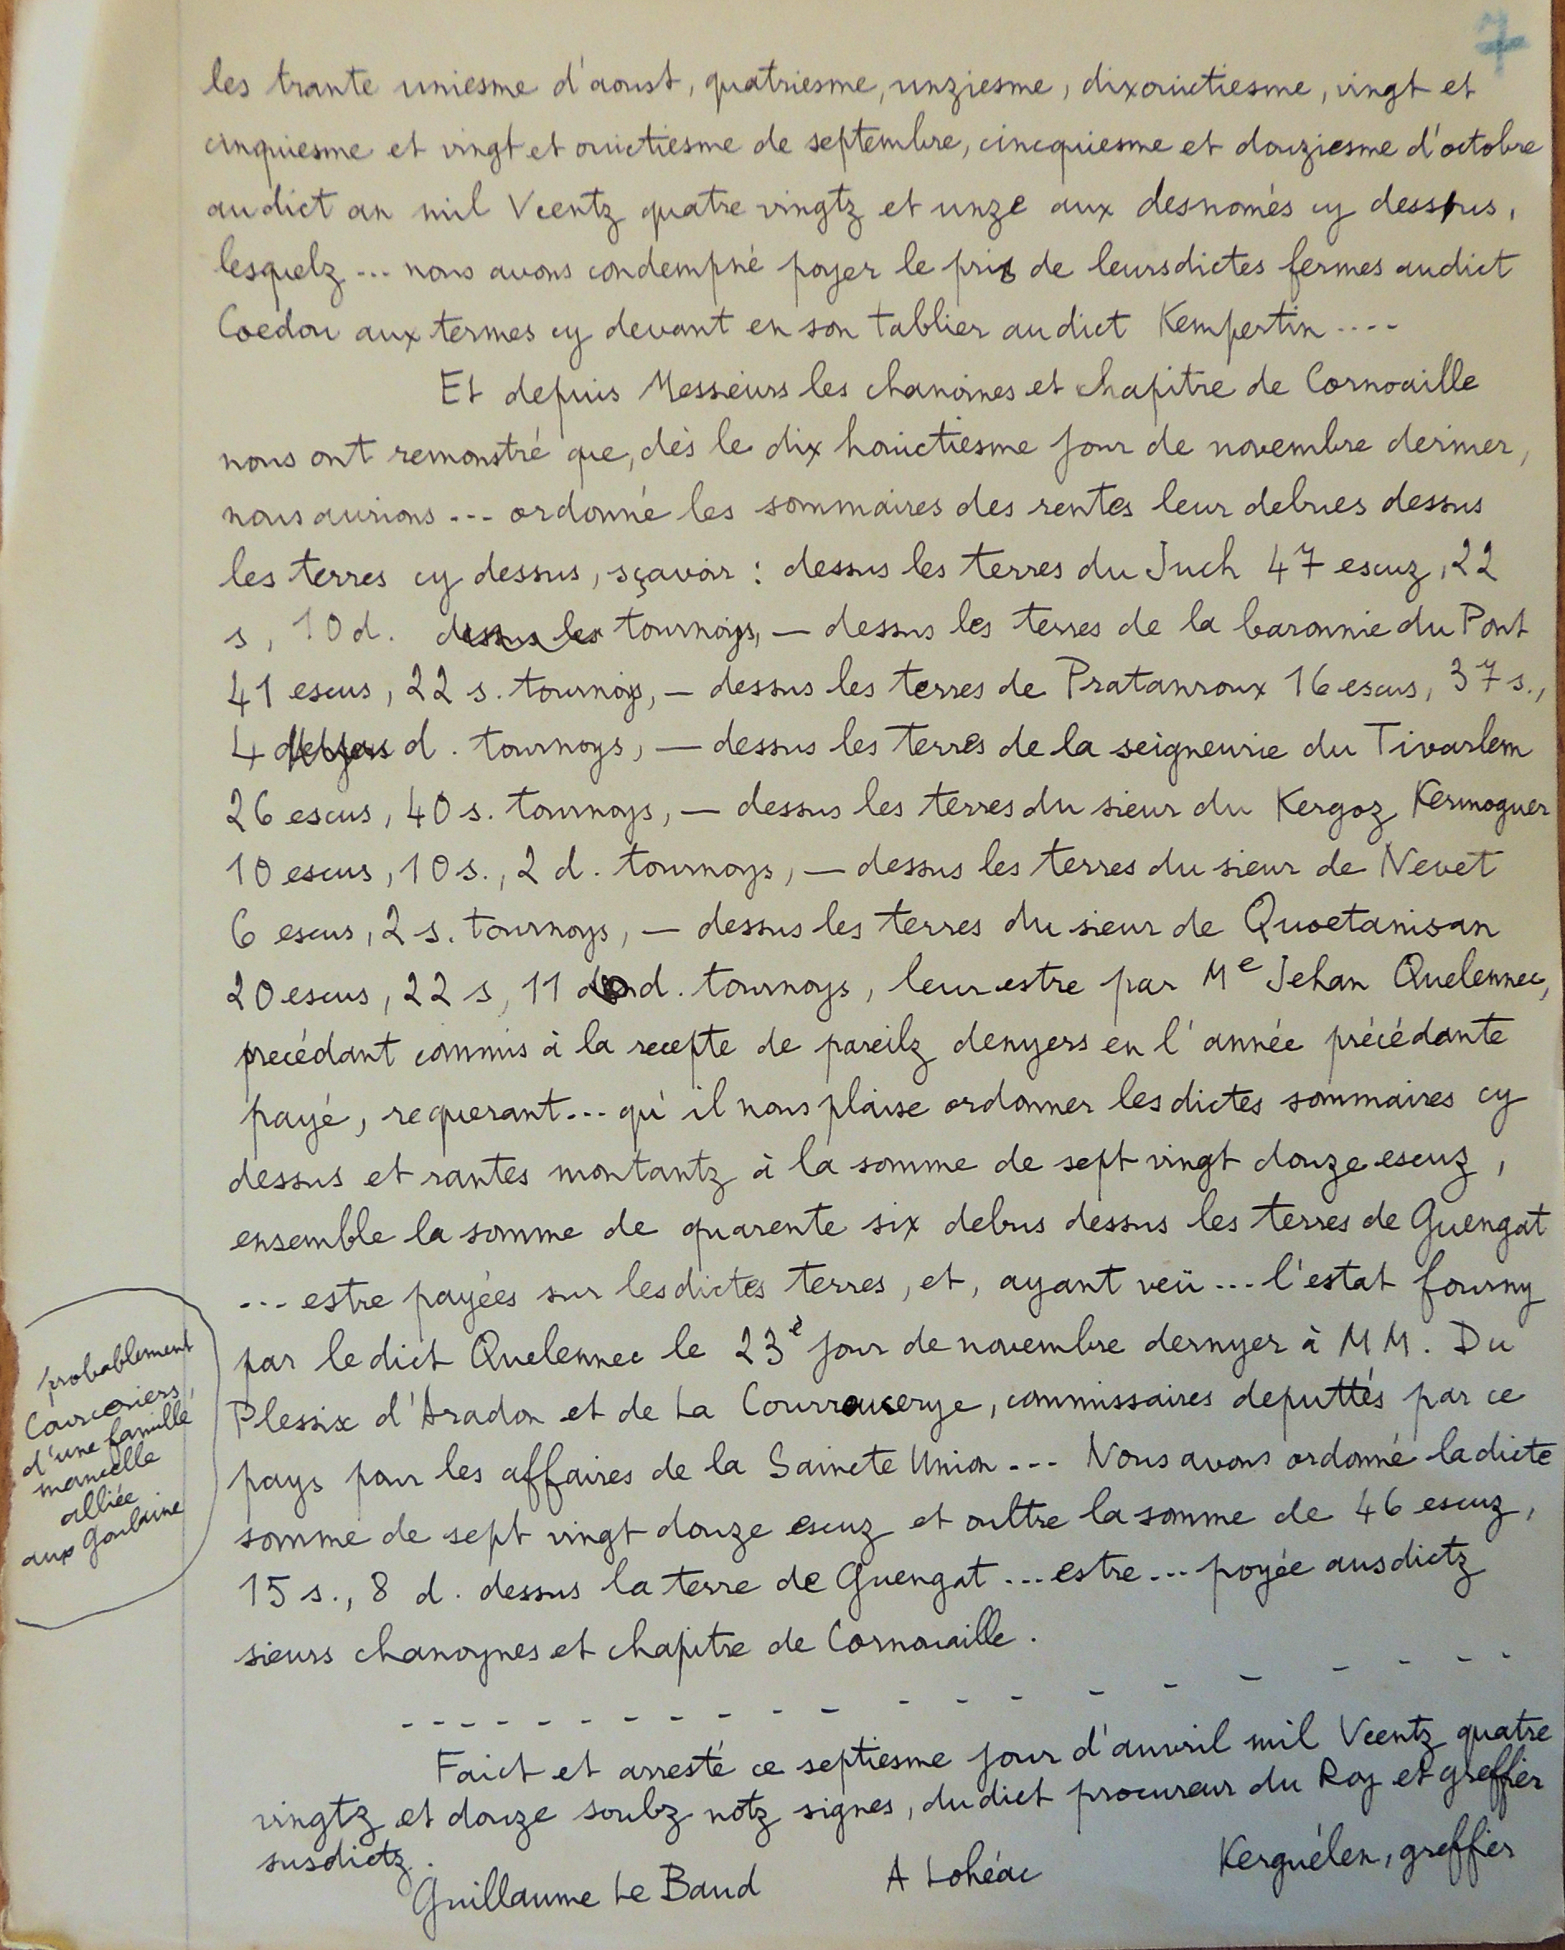 7
les trante uniesme d'aoust, quatriesme, unziesme, dixouictiesme, vingt et
cinquiesme et vingt et ouictiesme de septembre, cincquiesme et douziesme d'octobre
audict an mil Vcentz quatre vingtz et unze aux desnomés cy dessus,
lesquelz ... nous avons condempné payer le pris de leursdictes fermes audict
Coedou aux termes cy devant en son tablier audict Kempertin ....
Et depuis Messieurs les chanoines et chapitre de Cornoaille
nous ont remonstré que, dès le dix houictiesme jour de novembre dernier,
nous aurions ... ordonné les sommaires des rentes leur debues dessus
les terres cy dessus, sçavoir : dessus les terres du Juch 47 escuz, 22
s, 10 d. tournoys, — dessus les terres de la baronnie du Pont
41 escus, 22 s. tournoys, — dessus les terres de Pratanroux 16 escus, 37 s.,
4 d. tournoys, — dessus les terres de la seigneurie du Tivarlem
26 escus, 40 s. tournoys, — dessus les terres du sieur du Kergoz Kermoguer
10 escus, 10 s., 2 d. tournoys, — dessus les terres du sieur de Nevet
6 escus, 2 s. tournoys, — dessus les terres du sieur de Quoetanisan
20 escus, 22 s, 11 d. tournoys, leur estre par Me Jehan Quelennec,
precédant commis à la recepte de pareilz denyers en l'année précédante
payé, requerant... qu'il nous plaise ordonner lesdictes sommaires cy
dessus et rantes montantz à la somme de sept vingt douze escuz,
ensemble la somme de quarente six debus dessus les terres de Guengat
... estre payées sur lesdictes terres, et, ayant veü ... l'estat fourny
par ledict Quelennec le 23e jour de novembre dernyer à MM. Du
Plessix d'Aradon et de La Courroucerye, commissaires deputtés par ce
pays pour les affaires de la Saincte Union ... Nous avons ordonné ladicte
somme de sept vingt douze escuz et oultre la somme de 46 escuz,
15 s., 8 d. dessus la terre de Guengat ... estre ... poyée ausdictz
sieurs chanoynes et chapitre de Cornouaille.
probablement
d'une famille
mancelle
alliée
aux Goulaine
Faict et arresté ce septiesme jour d'auvril mil Vcentz quatre
vingtz et douze soubz notz signes, dudict procureur du Roy et greffier
susdictz.
Guillaume Le Baud A Lohéac Kerguélen, greffier